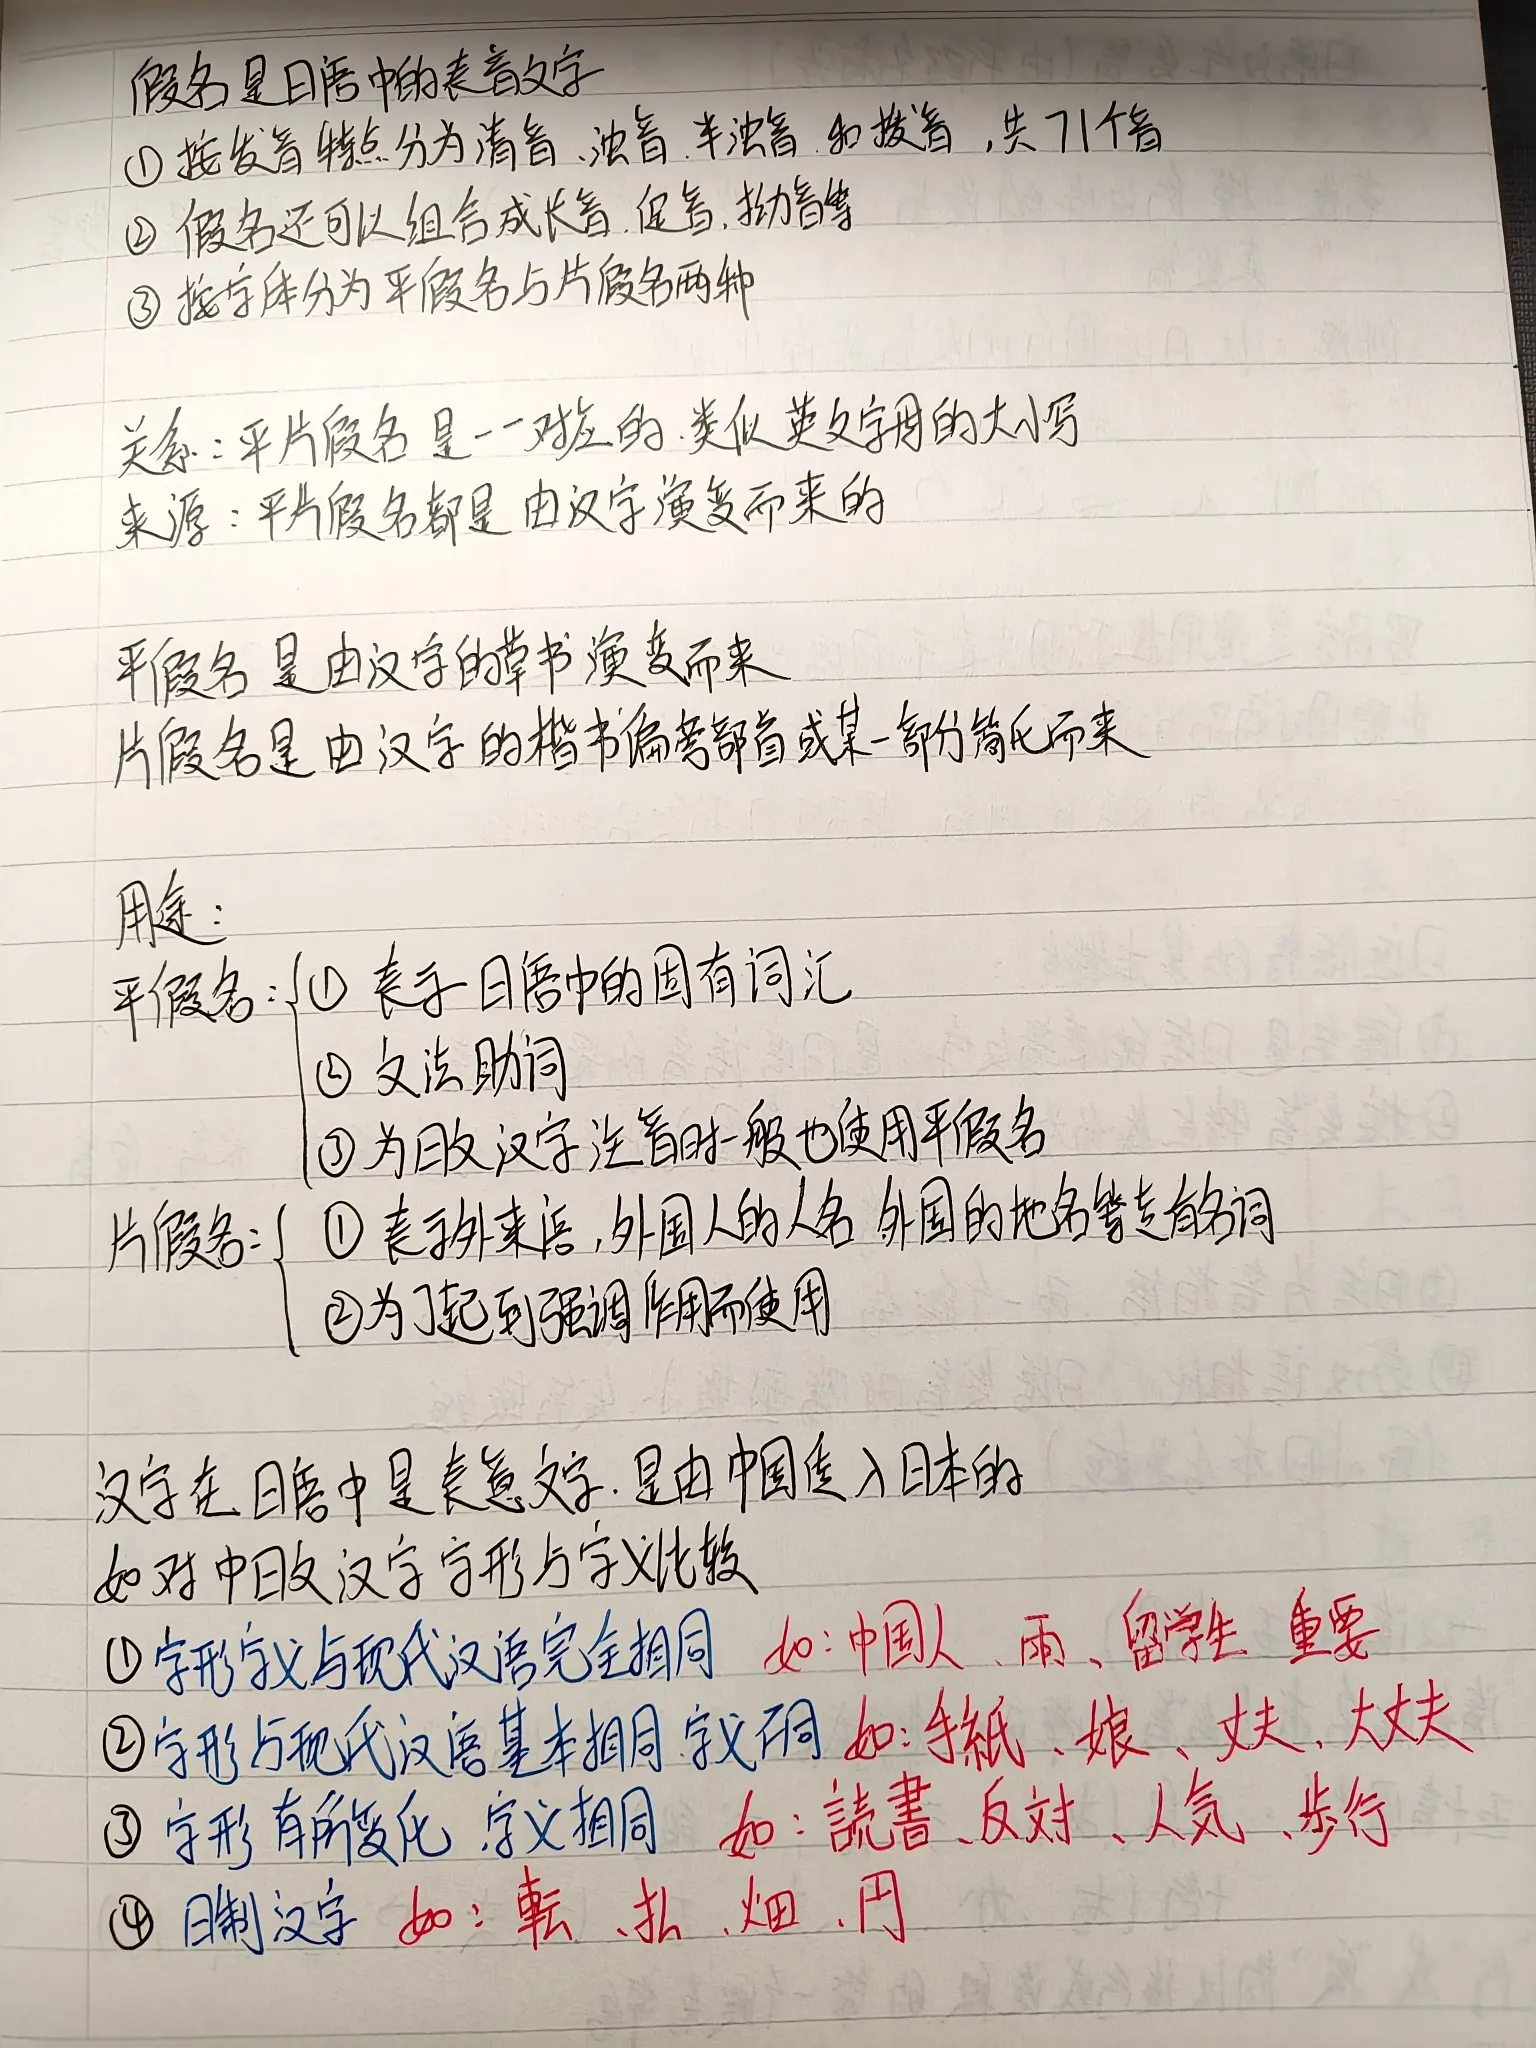 假名是日语中的表音文字
① 按发音特点分为清音、浊音、半浊音和拨音，共71个音
② 假名还可以组合成长音、促音、拗音等
③ 按字体分为平假名与片假名两种
关系：平片假名是一一对应的、类似英文字母的大小写
来源：平片假名都是由汉字演变而来的
平假名是由汉字的草书演变而来
片假名是由汉字的楷书偏旁部首或某一部分简化而来
用途：
平假名：① 表示日语中的固有词汇
② 文法助词
③ 为日文汉字注音时一般也使用平假名
片假名：① 表示外来语，外国人的人名、外国的地名等专有名词
② 为了起到强调作用而使用
汉字在日语中是表意文字、是由中国传入日本的
如对中日文汉字字形与字义比较
① 字形字义与现代汉语完全相同 如：中国人、雨、留学生 重要
② 字形与现代汉语基本相同、字义不同 如：手紙、娘、丈夫、大丈夫
③ 字形有所变化、字义相同 如：読書、反対、人気、歩行
④ 日制汉字 如：転、払、畑、円